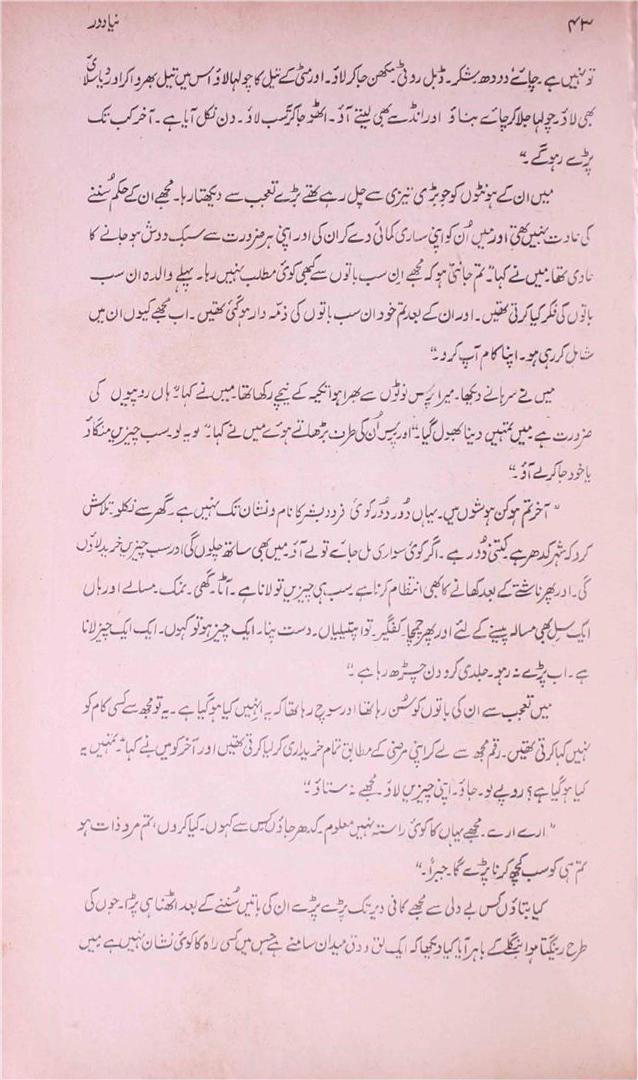 ۴۳
نیا دور
تو نہیں ہے۔ چائے، دودھ شکر۔ ڈبل روٹی مکھن جاکر لاؤ۔ اور مٹی کے تیل کا چولہا لاؤ اس میں تیل بھروا کر اور دیا سلائی
بھی لاؤ۔ چولہا جلا کر چائے بناؤ اور انڈے بھی لیتے آؤ۔ اٹھو جاکر سب لاؤ۔ دن نکل آیا ہے۔ آخر کب تک
پڑے رہو گے۔"
میں ان کے ہونٹوں کو جو بڑی تیزی سے چل رہے تھے بڑے تعجب سے دیکھتا رہا۔ مجھے ان کے حکم سُننے
کی عادت نہیں تھی اور میں اُن کو اپنی ساری کمائی دے کر ان کی اور اپنی ہر ضرورت سے سبک دوش ہو جانے کا
عادی تھا۔ میں نے کہا۔ "تم جانتی ہو کہ مجھے ان سب باتوں سے کبھی کوئی مطلب نہیں رہا۔ پہلے والدہ ان سب
باتوں کی فکر کیا کرتی تھیں۔ اور ان کے بعد تم خود ان سب باتوں کی ذمّہ دار ہو گئی تھیں۔ اب مجھے کیوں ان میں
شامل کر رہی ہو۔ اپنا کام آپ کرو۔"
میں نے سرہانے دیکھا۔ میرا پرس نوٹوں سے بھرا ہوا تکیہ کے نیچے رکھا تھا۔ میں نے کہا۔ "ہاں روپیوں کی
ضرورت ہے۔ میں تمہیں دینا بھول گیا۔" اور پرس اُن کی طرف بڑھاتے ہوئے میں نے کہا۔ "لو یہ لو۔ سب چیزیں منگاؤ
یا خود جا کر لے آؤ۔"
"آخر تم ہو کن ہوشوں میں۔ یہاں دُور دُور کوئی فرد و بشر کا نام و نشان تک نہیں ہے۔ گھر سے نکلو۔ تلاش
کرو کہ شہر کدھر ہے۔ کتنی دُور ہے۔ اگر کوئی سواری مل جائے تو لے آؤ۔ میں بھی ساتھ چلوں گی اور سب چیزیں خرید لاؤں
گی۔ اور پھر ناشتے کے بعد کھانے کا بھی انتظام کرنا ہے۔ سب ہی چیزیں تو لانا ہے۔ آٹا۔ گھی۔ نمک۔ مسالے اور ہاں
ایک سِل بھی مسالہ پیسنے کے لئے اور پھر چمچا۔ کفگیر۔ توا پتیلیاں۔ دست پنا۔ ایک چیز ہو تو کہوں۔ ایک ایک چیز لانا
ہے۔ اب پڑے نہ رہو۔ جلدی کرو دن چڑھ رہا ہے۔"
میں تعجب سے ان کی باتوں کو سُن رہا تھا اور سوچ رہا تھا کہ یہ انہیں کیا ہو گیا ہے۔ یہ تو مجھ سے کسی کام کو
نہیں کہا کرتی تھیں۔ رقم مجھ سے لے کر اپنی مرضی کے مطابق تمام خریداری کر لیا کرتی تھیں اور آخر کو میں نے کہا۔ "تمہیں یہ
کیا ہو گیا ہے؟ روپے لو۔ جاؤ۔ اپنی چیزیں لاؤ۔ مجھے نہ ستاؤ۔"
"ارے ارے۔ مجھے یہاں کا کوئی راستہ نہیں معلوم۔ کدھر جاؤں کس سے کہوں۔ کیا کروں، تم مرد ذات ہو
تم ہی کو سب کچھ کرنا پڑے گا۔ جبراً۔"
کیا بتاؤں کس بے دلی سے مجھے کافی دیر تک پڑے پڑے ان کی باتیں سُننے کے بعد اٹھنا ہی پڑا۔ جوں کی
طرح رینگتا ہوا بنگلے کے باہر آیا کیا دیکھا کہ ایک لق و دق میدان سامنے ہے جس میں کسی راہ کا کوئی نشان نہیں ہے میں